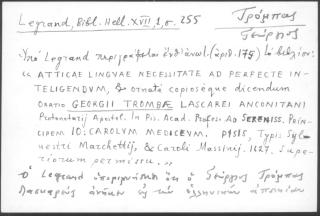 Legrand, Bibl. Hell. XVII, 1, σ. 255
Τρόμπας
Γεώργιος
Ὑπὸ Legrand περιγράφεται ἐνθ' ἀνωτ. (ἀριθ. 175) τὸ βιβλίον:
« ATTICAE LINGVAE NECESSITATE AD PERFECTE IN-
TELIGENDVM, & ornatè copiosèque dicendum
ORATIO GEORGII TROMBÆ LASCAREI ANCONITANI
Protonotarij Apostol. In Pis. Acad. Profess. AD SERENISS. PRIN-
CIPEM IO: CAROLVM MEDICEVM. PISIS, Typis Sylue-
nestri Marchettij, & Caroli Massinij. 1627. Supe-
riorum permissu. »
Ὁ Legrand ὑποσημειώνει ὅτι ὁ Γεώργιος Τρόμπας
Λασκαρεὺς ἀνήκει εἰς τὴν ἑλληνικὴν ἀποικίαν